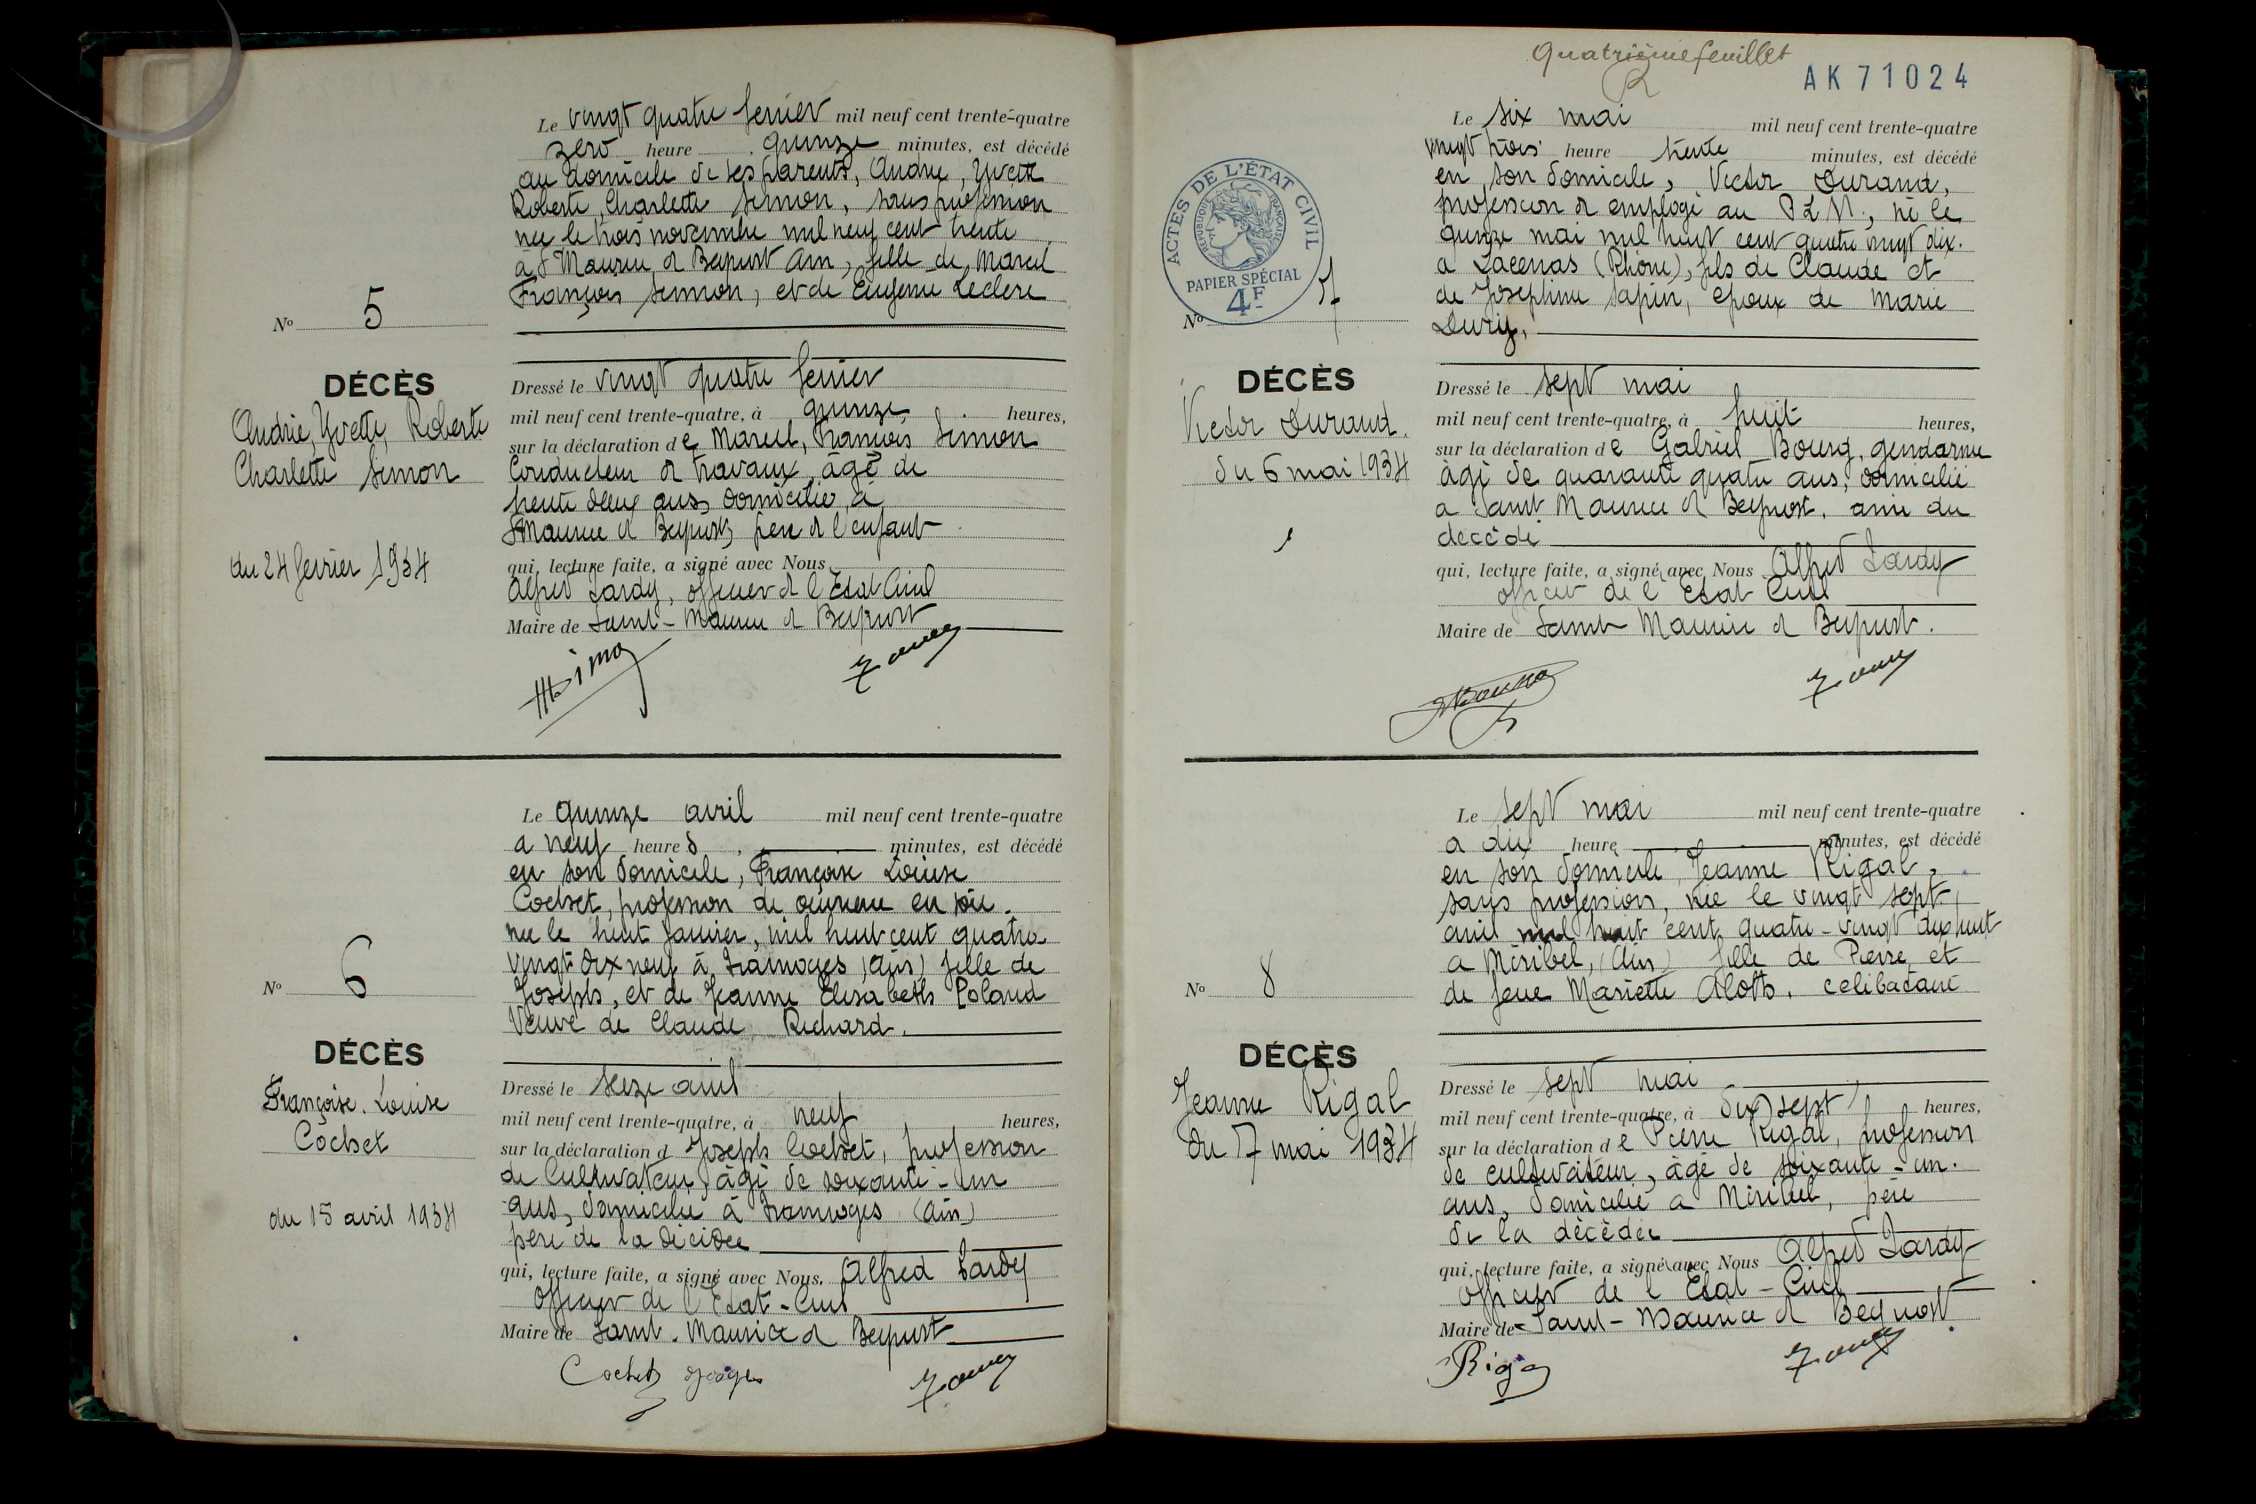 Le vingt quatre fevrier mil neuf cent trente-quatre
zero heure quinze minutes, est décédé
au domicile de ses parents, Andrée, Yvette
Roberte, Charlette Simon, sans profession
née le trois novembre mil neuf cent trente
à St Maurice de Beynost Ain, fille de Marcel
François Simon, et de Eugenie Leclere
No 5
DÉCÈS
Andrée, Yvette, Roberte
Charlette Simon
du 24 fevrier 1934
Dressé le vingt quatre fevrier
mil neuf cent trente-quatre, à quinze heures,
sur la déclaration de Marcel, François Simon
Conducteur de travaux, âgé de
trente deux ans, domicilié à
St Maurice de Beynost, père de l'enfant
qui, lecture faite, a signé avec Nous,
Alfred Jardy, officier de l'Etat Civil
Maire de Saint-Maurice de Beynost
Le quinze avril mil neuf cent trente-quatre
a neuf heures, minutes, est décédé
en son domicile, Françoise Louise
Cochet, profession de ouvrière en soie.
née le huit Janvier, mil huit cent quatre-
vingt dix neuf à Tramoyes (Ain) fille de
Joseph, et de Jeanne Elisabeth Poland
Veuve de Claude Richard.
No 6
DÉCÈS
Françoise. Louise
Cochet
du 15 avril 1934
Dressé le seize avril
mil neuf cent trente-quatre, à neuf heures,
sur la déclaration d Joseph Cochet, profession
de Cultivateur, âgé de soixante-un
ans, domicilié à Tramoyes (Ain)
père de la décédée
qui, lecture faite, a signé avec Nous, Alfred Jardy
Officier de l'Etat-Civil
Maire de Saint-Maurice de Beynost
Cochet Joseph
Quatrième feuillet
AK 71024
ACTES DE L'ÉTAT CIVIL
RÉPUBLIQUE FRANÇAISE
PAPIER SPÉCIAL
4F
Le six mai mil neuf cent trente-quatre
vingt trois heure trente minutes, est décédé
en son domicile, Victor Durand,
profession de employé au P L M., né le
quinze mai mil huit cent quatre vingt dix.
a Lacenas (Rhône), fils de Claude et
de Josephine Sapin, époux de Marie
Dury,
No 7
DÉCÈS
Victor Durand.
du 6 mai 1934
Dressé le sept mai
mil neuf cent trente-quatre, à huit heures,
sur la déclaration de Gabriel Bourg, gendarme
âgé de quarante quatre ans, domicilié
a Saint Maurice de Beynost, ami du
décédé
qui, lecture faite, a signé avec Nous Alfred Jardy
officier de l'Etat Civil
Maire de Saint Maurice de Beynost.
Le sept mai mil neuf cent trente-quatre
a dix heure minutes, est décédé
en son domicile, Jeanne Rigal,
sans profession, née le vingt sept
avril mil huit cent quatre-vingt dix huit
a Miribel, (Ain) fille de Pierre et
de feue Mariette Aloth. celibataire
No 8
DÉCÈS
Jeanne Rigal
du 7 mai 1934
Dressé le sept mai
mil neuf cent trente-quatre, à dix sept heures,
sur la déclaration de Pierre Rigal, profession
de cultivateur, âgé de soixante-un.
ans, domicilié a Miribel, père
de la décédée
qui, lecture faite, a signé avec Nous Alfred Jardy
officier de l'Etat-Civil
Maire de Saint-Maurice de Beynost.
Rigal